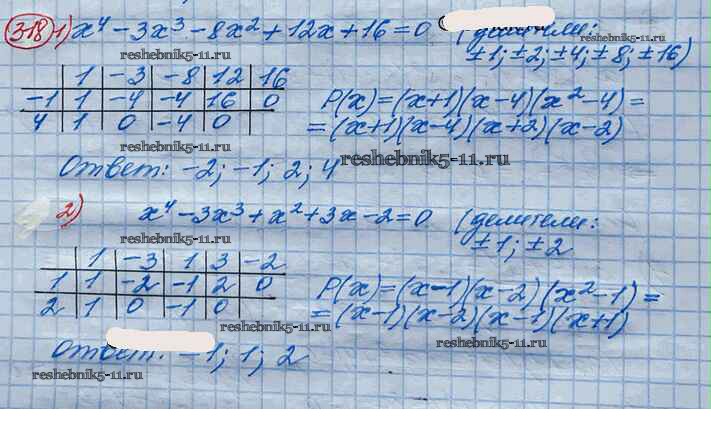 318 1) x⁴ - 3x³ - 8x² + 12x + 16 = 0 (делители:
±1; ±2; ±4; ±8; ±16)
reshebnik5-11.ru
1 -3 -8 12 16
-1 1 -4 -4 16 0
4 1 0 -4 0
P(x) = (x+1)(x-4)(x²-4) =
= (x+1)(x-4)(x+2)(x-2)
reshebnik5-11.ru
reshebnik5-11.ru
Ответ: -2; -1; 2; 4
reshebnik5-11.ru
2) x⁴ - 3x³ + x² + 3x - 2 = 0 (делители:
±1; ±2
reshebnik5-11.ru
1 -3 1 3 -2
1 1 -2 -1 2 0
2 1 0 -1 0
P(x) = (x-1)(x-2)(x²-1) =
= (x-1)(x-2)(x-1)(x+1)
reshebnik5-11.ru
reshebnik5-11.ru
Ответ: -1; 1; 2
reshebnik5-11.ru